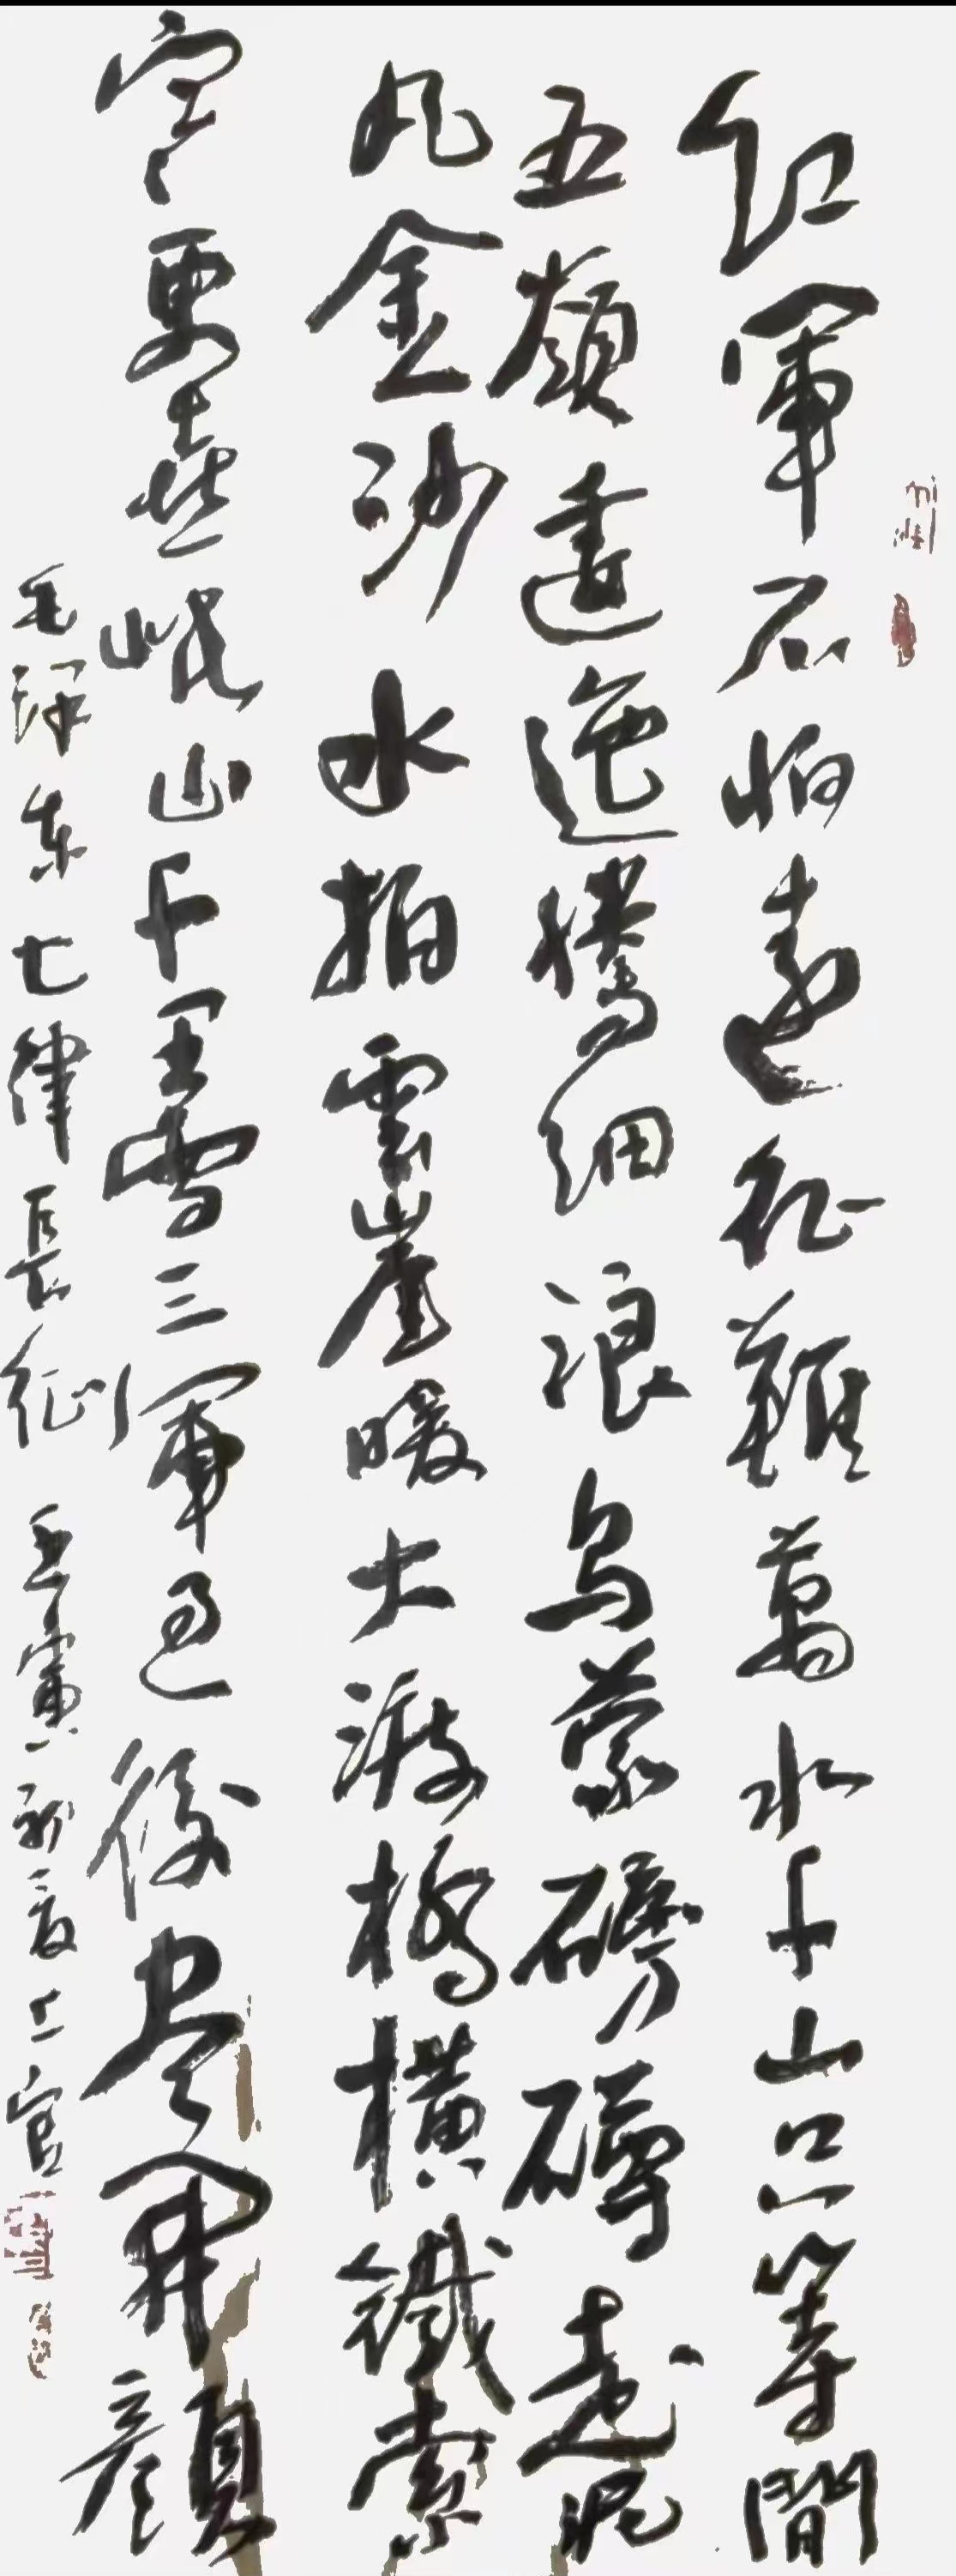 紅軍不怕遠征難萬水千山只等間
五嶺逶迤騰細浪烏蒙磅礴走泥
丸金沙水拍雲崖暖大渡橋橫鐵索
寒更喜岷山千里雪三軍過後盡開顏
毛澤東七律長征 壬寅初夏上官